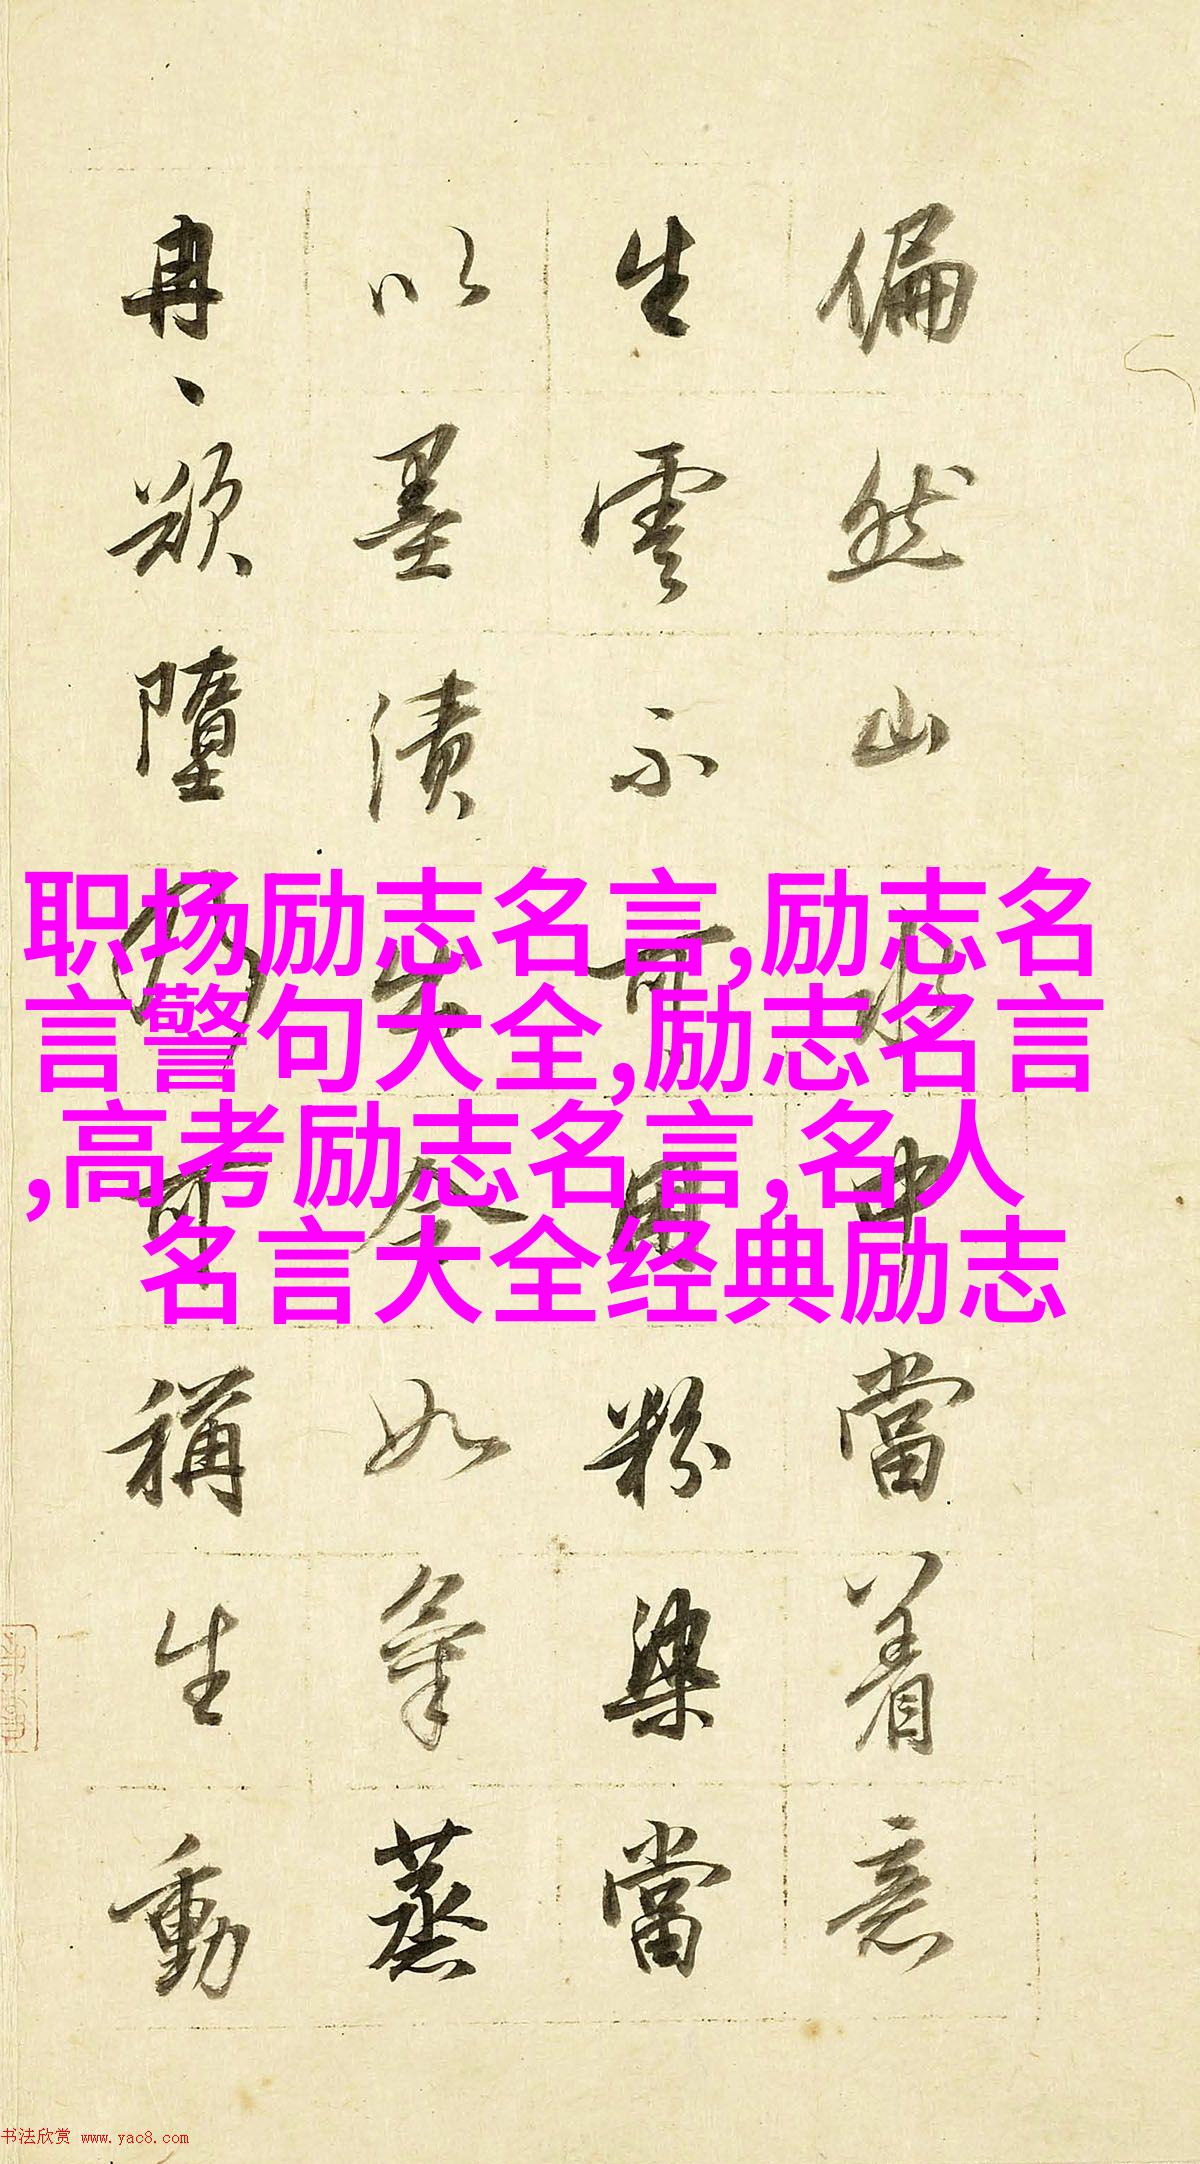 偏然山水中當着意
生雲不可用粉染當
以墨漬出令如氣蒸
冉、欲墮乃可稱生動
职场励志名言,励志名
言警句大全,励志名言
,高考励志名言,名人
名言大全经典励志
书法欣赏 www.yac8.com